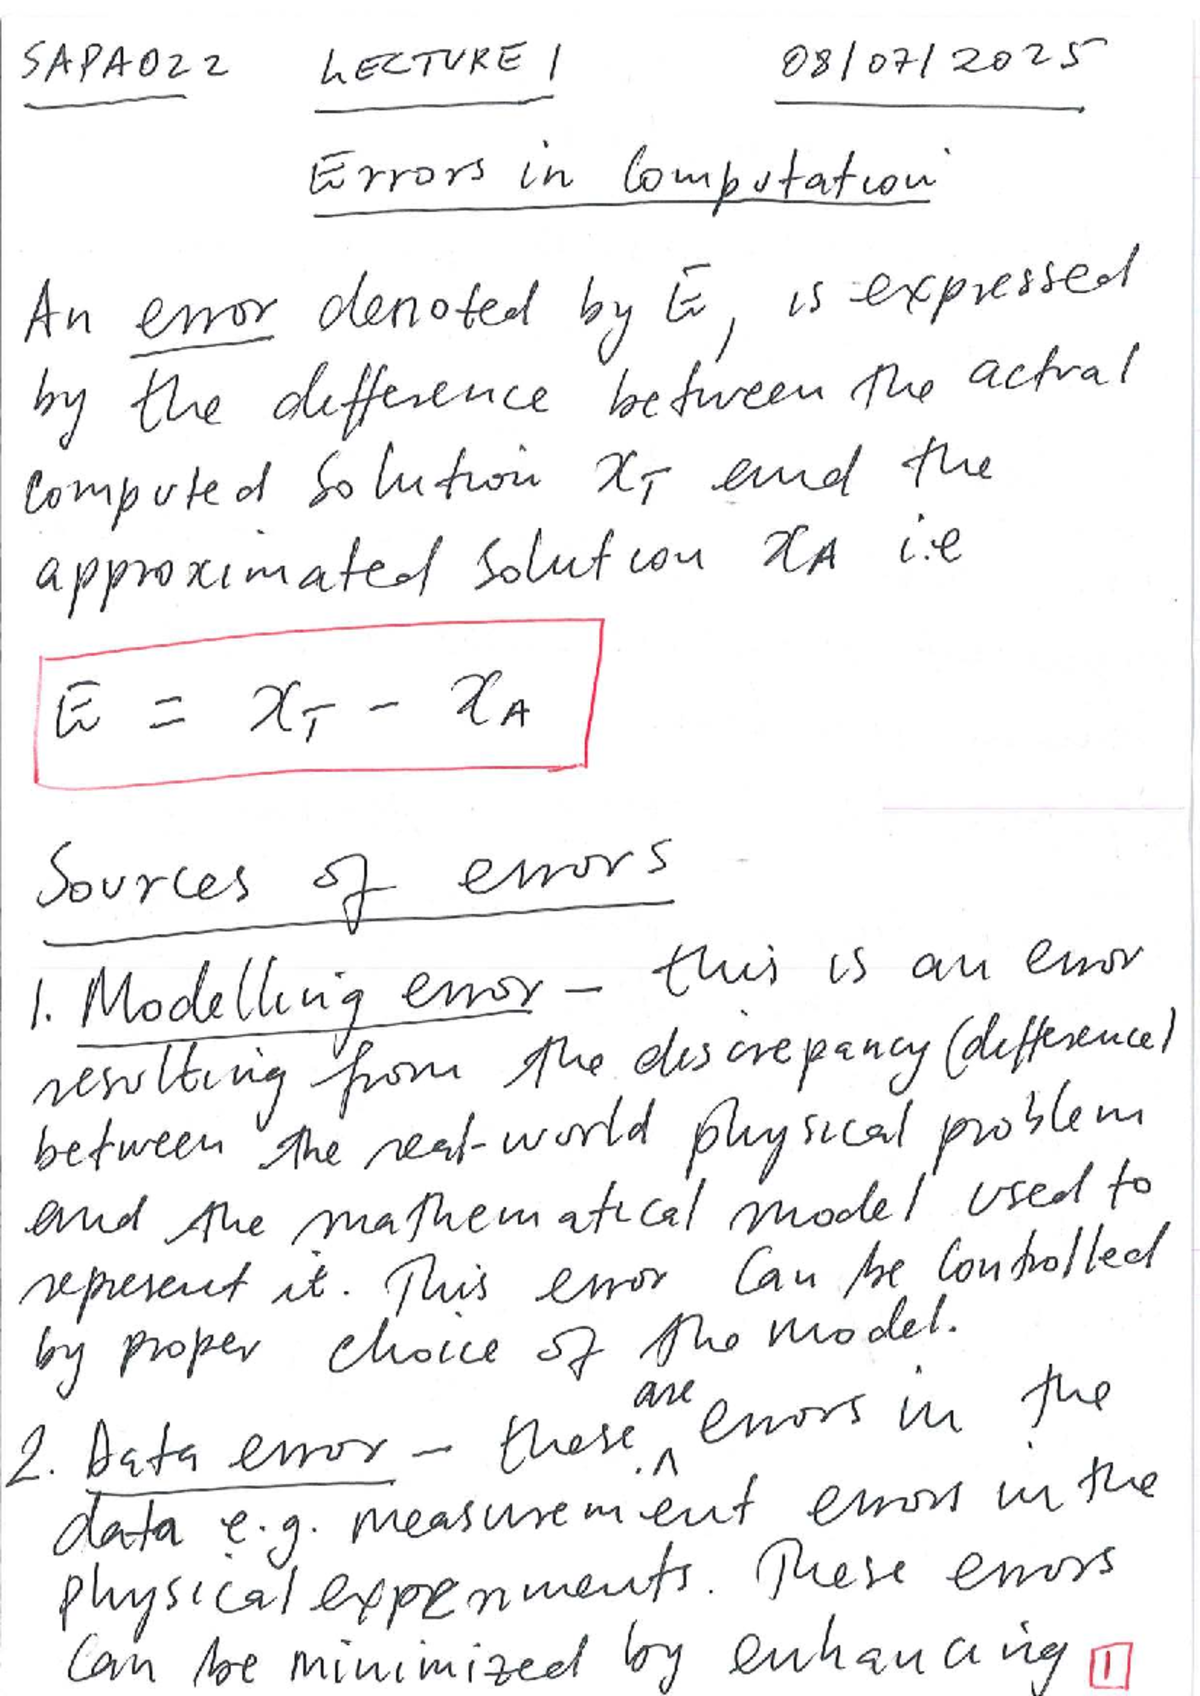 SAPA022 LECTURE 1 08/07/2025
Errors in Computation
An error denoted by E, is expressed
by the difference between the actual
computed solution x_T and the
approximated solution x_A i.e
E = x_T - x_A
Sources of errors
1. Modelling error - this is an error
resulting from the discrepancy (difference)
between the real-world physical problem
and the mathematical model used to
represent it. This error can be controlled
by proper choice of the model.
2. Data error - these are errors in the
data e.g. measurement errors in the
physical experiments. These errors
can be minimized by enhancing 1